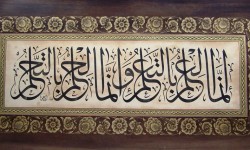 إنما العلم بالتعلم وإنما الحلم بالتحلم